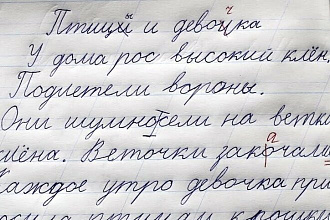 Птицы и девочка
У дома рос высокий клён.
Подлетели вороны.
Они шумно сели на ветки
клёна. Веточки закачали
Каждое утро девочка при